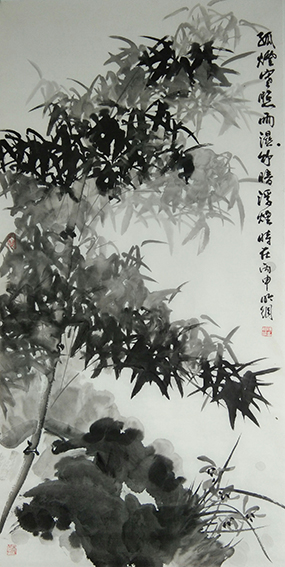 孤燈寒照雨濕竹暗浮煙時在丙申